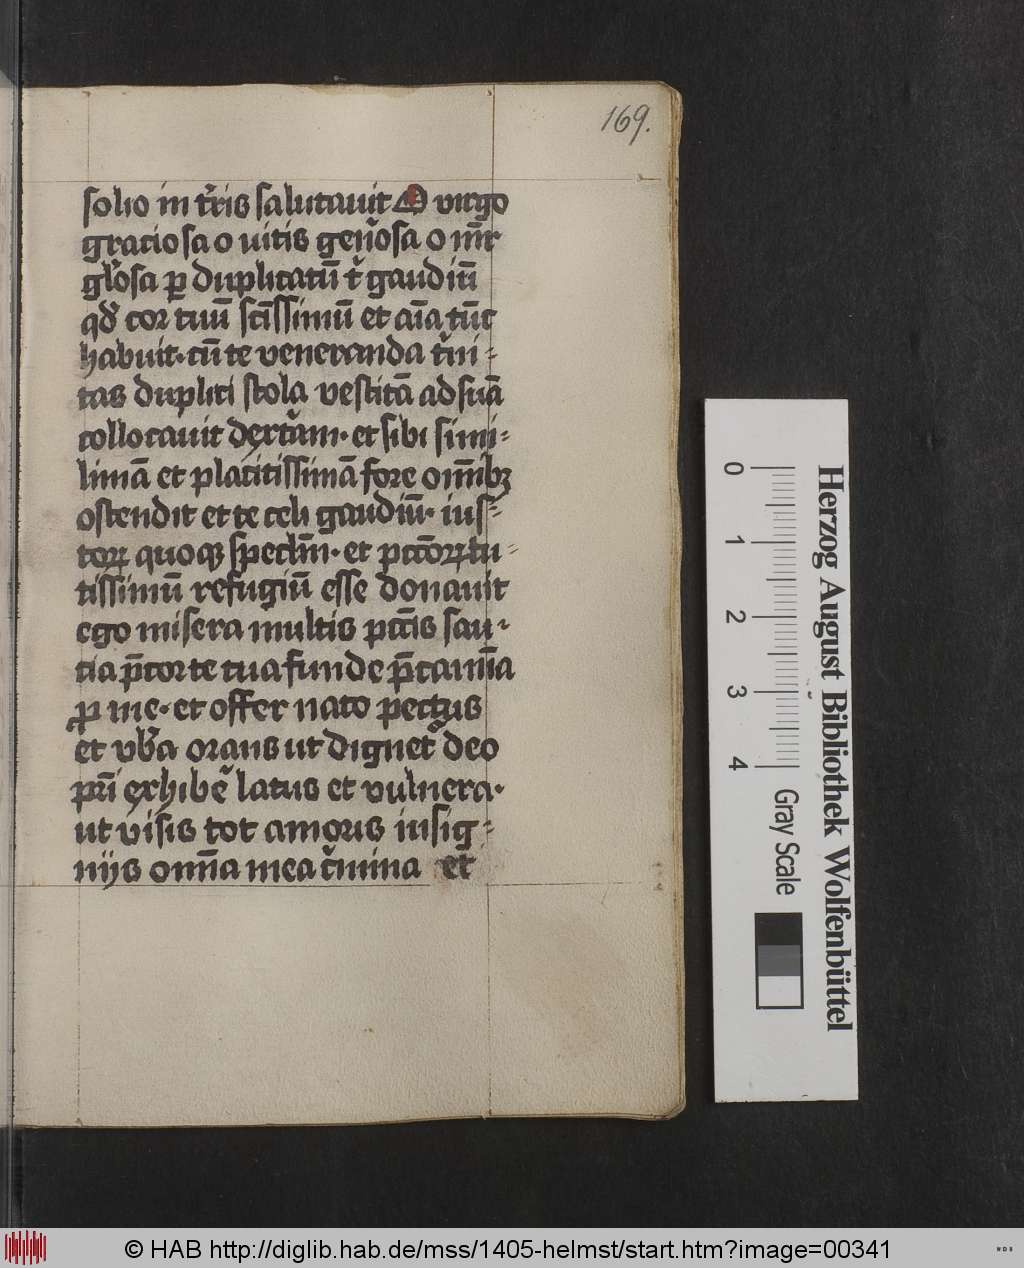 169.
solio in tr̄is salutauit O virgo
graciosa o uitis gen̄osa o mr̄
gl̓osa ꝑ duplicatū t̓ gaudiū
qd̓ cor tuū sct̄issimū et aīa tūc
habuit · cū te veneranda t̓ni⸗
tas duplici stola vestitā ad suā
collocauit dext̓am · et sibi simi⸗
limā et placitissimā fore om̄ibꝫ
ostendit et te celi gaudiū · ius⸗
toꝝ quoqꝫ specl̄m · et pcc̄oꝝ tu⸗
tissimū refugiū esse donauit
ego misera multis pcc̄is sau⸗
cia p̄cor te tua funde p̄camīa
ꝓ me · et offer nato pectus
et vb̓a orans ut dignet̓ deo
pr̄i exhibe̓ latus et vulnera ·
ut visis tot amoris insig⸗
niis om̄ia mea c̓mina et
Herzog August Bibliothek Wolfenbüttel
0 1 2 3 4 Gray Scale
© HAB http://diglib.hab.de/mss/1405-helmst/start.htm?image=00341